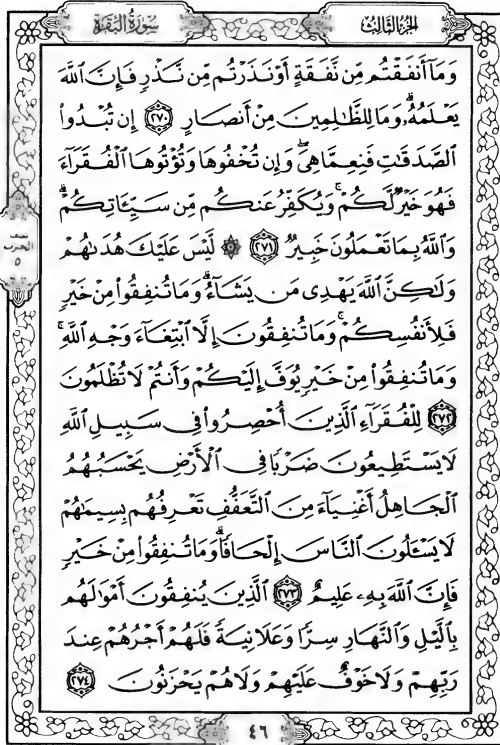 الجزء الثالث
سورة البقرة
وَمَآ أَنفَقْتُم مِّن نَّفَقَةٍ أَوْ نَذَرْتُم مِّن نَّذْرٍ فَإِنَّ ٱللَّهَ
يَعْلَمُهُۥ وَمَا لِلظَّٰلِمِينَ مِنْ أَنصَارٍ ٢٧٠ إِن تُبْدُوا۟
ٱلصَّدَقَٰتِ فَنِعِمَّا هِىَ وَإِن تُخْفُوهَا وَتُؤْتُوهَا ٱلْفُقَرَآءَ
فَهُوَ خَيْرٌ لَّكُمْ ۚ وَيُكَفِّرُ عَنكُم مِّن سَيِّـَٔاتِكُمْ ۗ
وَٱللَّهُ بِمَا تَعْمَلُونَ خَبِيرٌ ٢٧١ ۞ لَّيْسَ عَلَيْكَ هُدَىٰهُمْ
وَلَٰكِنَّ ٱللَّهَ يَهْدِى مَن يَشَآءُ ۗ وَمَا تُنفِقُوا۟ مِنْ خَيْرٍ
فَلِأَنفُسِكُمْ ۚ وَمَا تُنفِقُونَ إِلَّا ٱبْتِغَآءَ وَجْهِ ٱللَّهِ ۚ
وَمَا تُنفِقُوا۟ مِنْ خَيْرٍ يُوَفَّ إِلَيْكُمْ وَأَنتُمْ لَا تُظْلَمُونَ
٢٧٢ لِلْفُقَرَآءِ ٱلَّذِينَ أُحْصِرُوا۟ فِى سَبِيلِ ٱللَّهِ
لَا يَسْتَطِيعُونَ ضَرْبًا فِى ٱلْأَرْضِ يَحْسَبُهُمُ
ٱلْجَاهِلُ أَغْنِيَآءَ مِنَ ٱلتَّعَفُّفِ تَعْرِفُهُم بِسِيمَٰهُمْ
لَا يَسْـَٔلُونَ ٱلنَّاسَ إِلْحَافًا ۗ وَمَا تُنفِقُوا۟ مِنْ خَيْرٍ
فَإِنَّ ٱللَّهَ بِهِۦ عَلِيمٌ ٢٧٣ ٱلَّذِينَ يُنفِقُونَ أَمْوَٰلَهُم
بِٱلَّيْلِ وَٱلنَّهَارِ سِرًّا وَعَلَانِيَةً فَلَهُمْ أَجْرُهُمْ عِندَ
رَبِّهِمْ وَلَا خَوْفٌ عَلَيْهِمْ وَلَا هُمْ يَحْزَنُونَ ٢٧٤
الحزب
٥
٤٦